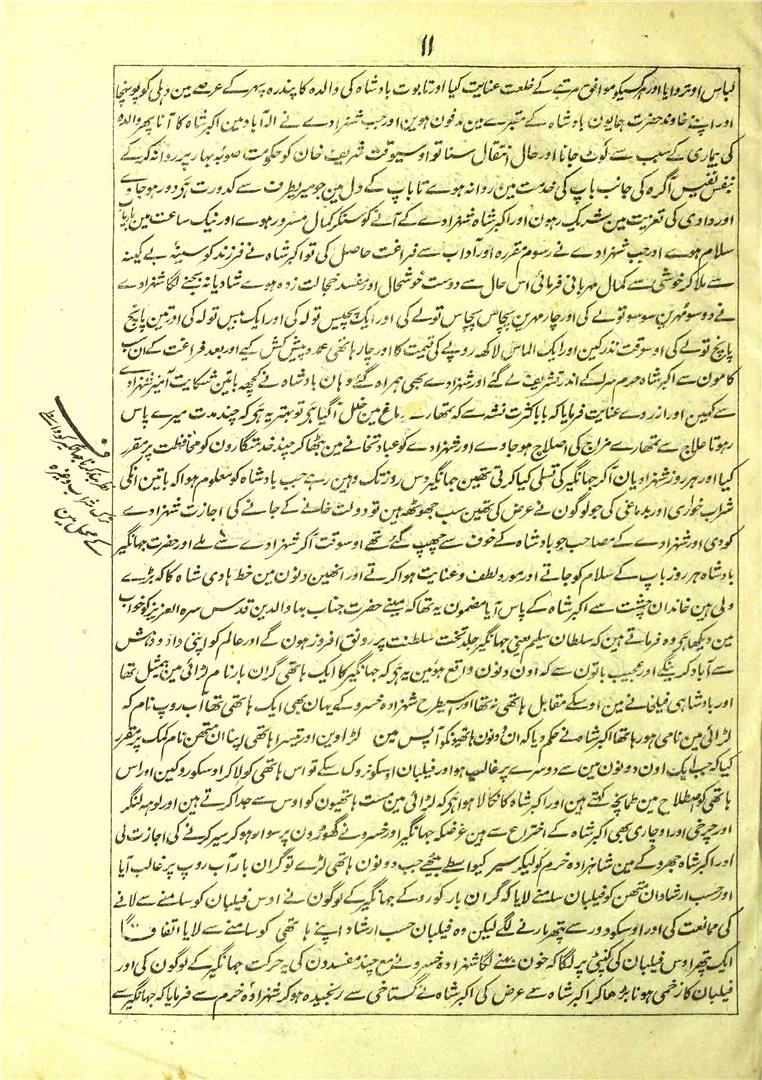 ۱۱
لباس اوتروایا اور ہر کسیکو موافق مرتبے کے خلعت عنایت کیا اور تابوت بادشاہ کی والدہ کا پندرہ پہر کے عرصے مین دہلی کو پہونچا
اور اپنے خاوند حضرت ہمایون بادشاہ کے مقبرے مین مدفون ہوین اور جب شہزادے نے الہ آباد مین اکبر شاہ کا آنا پھر والدہ
کی بیماری کے سبب سے لوٹ جانا اور حال انتقال سنا تو اوسیوقت شریف خان کو حکومت صوبہ بہار پر روانہ کر کے
بنفس نفیس آگرہ کی جانب باپ کی خدمت مین روانہ ہوے تا باپ کے دل مین جو میری طرف سے کدورت ہی دور ہو جاوے
اور دادی کی تعزیت مین شریک رہون اور اکبر شاہ شہزادے کے آنے کو سنکر کمال مسرور ہوے اور نیک ساعت مین باریاب
سلام ہوے اور جب شہزادے نے رسوم مقررہ اور آداب سے فراغت حاصل کی تو اکبر شاہ نے فرزند کو سینہ بے کینہ
سے ملا کر خوشی سے کمال مہربانی فرمائی اس حال سے دوست خوشحال اور مفسد خجالت زدہ ہوے شادیانہ بجنے لگا شہزادے
نے دو سو مہرین سو سو تولے کی اور چار مہرین پچاس پچاس تولے کی اور ایک پچیس تولہ کی اور ایک بیس تولہ کی اور تین پانچ
پانچ تولے کی اوسوقت نذر کین اور ایک الماس لاکھ روپے کی قیمت کا اور چار ہاتھی عمدہ پیش کش کیے اور بعد فراغت کے ان سب
کامون سے اکبر شاہ حرم سرا کے اندر تشریف لے گئے اور شہزادے بھی ہمراہ گئے وہان بادشاہ نے کچھہ باتین شکایت آمیز شہزادے
سے کہین اور از روے عنایت فرمایا کہ بابا کثرت نشہ سے کہ تمھارے دماغ مین خلل آ گیا ہی تو بہتر یہ ہی کہ چند مدت میرے پاس
رہو تا علاج سے تمھارے مزاج کی اصلاح ہو جاوے اور شہزادے کو عبادتخانے مین بٹھا کر چند خدمتگارون کو محافظت پر مقرر
کیا اور ہر روز شہزادیان آ کر جہانگیر کی تسلی کیا کرتی تھین جہانگیر دس روز تک وہین رہے جب بادشاہ کو معلوم ہوا کہ باتین انکی
شراب خواری اور بد دماغی کی جو لوگون نے عرض کی تھین سب جھوٹھہ ہین تو دولت خانے کے جانے کی اجازت شہزادے
کو دی اور شہزادے کے مصاحب جو بادشاہ کے خوف سے چھپ گئے تھے اوسوقت آ کر شہزادے سے ملے اور حضرت جہانگیر
بادشاہ ہر روز باپ کے سلام کو جاتے اور مورد لطف و عنایت ہوا کرتے اور انھین دنون مین خط ہادی شاہ کا کہ بڑے
ولی ہین خاندان چشت سے اکبر شاہ کے پاس آیا مضمون یہ تھا کہ مینے حضرت جناب بہاوالدین قدس سرہ العزیز کو خواب
مین دیکھا ہی وہ فرماتے ہین کہ سلطان سلیم یعنی جہانگیر جلد تخت سلطنت پر رونق افروز ہون گے اور عالم کو اپنی داد و دہش
سے آباد کرینگے اور عجیب باتون سے کہ اون دنون واقع ہوئین یہ ہی کہ جہانگیر کا ایک ہاتھی گران بار نام لڑائی مین بیمثل تھا
اور بادشاہی فیلخانے مین اوسکے مقابل ہاتھی نہ تھا اور اسیطرح شہزادہ خسرو کے یہان بھی ایک ہاتھی تھا آب روپ نام کہ
لڑائی مین نامی ہو رہا تھا اکبر شاہ نے حکم دیا کہ ان دونون ہاتھیونکو آپس مین لڑاوین اور تیسرا ہاتھی اپنا ان متھن نام کمک پر مقرر
کیا کہ جب ایک اون دونون مین سے دوسرے پر غالب ہو اور فیلبان اوسکو نروک سکے تو اس ہاتھی کو لا کر اوسکو روکین اور اس
ہاتھی کو اصطلاح مین طمانچہ کہتے ہین اور اکبر شاہ کا نکالا ہوا ہی کہ لڑائی مین مست ہاتھیون کو اوس سے جدا کرتے ہین اور لوہہ لنگر
اور چرخی اور اوچاری بھی اکبر شاہ کے اختراع سے ہین غرضکہ جہانگیر اور خسرو نے گھوڑون پر سوار ہو کر سیر کرنے کی اجازت لی
اور اکبر شاہ جھروکے مین شاہزادہ خرم کو لیکر سیر کیواسطے بیٹھے جب دونون ہاتھی لڑے تو گران بار آب روپ پر غالب آیا
اور حسب ارشاد ان متھن کو فیلبان سامنے لایا کہ گران بار کو روکے جہانگیر کے لوگون نے اوس فیلبان کو سامنے سے لانے
کی ممانعت کی اور اوسکو دور سے پتھر مارنے لگے لیکن وہ فیلبان حسب ارشاد اپنے ہاتھی کو سامنے سے لایا اتفاقاً
ایک پتھر اوس فیلبان کی کنپٹی پر لگا کہ خون بہنے لگا شہزادہ خسرو نے مع چند مفسدون کی یہ حرکت جہانگیر کے لوگون کی اور
فیلبان کا زخمی ہونا بڑھا کر اکبر شاہ سے عرض کی اکبر شاہ نے گستاخی سے رنجیدہ ہو کر شہزادہ خرم سے فرمایا کہ جہانگیر سے
نظر بند کرنا جہانگیر کو واسطے
ترک شراب وغیرہ
کے محل مین